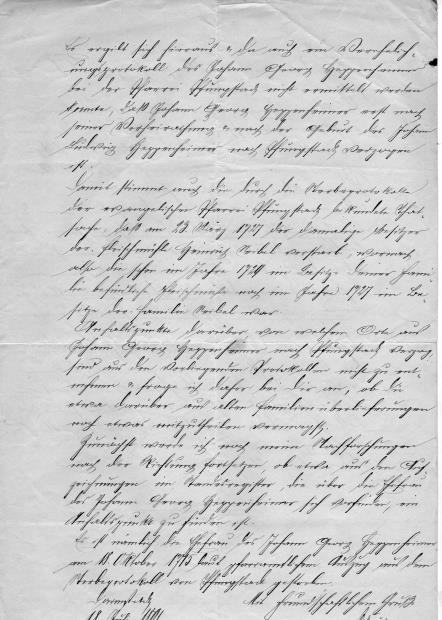 Es ergibt sich hieraus u. da auch ein Verehelich-
ungsprotokoll des Johann Georg Heppenheimer
bei der Pfarrei Pfungstadt nicht ermittelt werden
konnte, daß Johann Georg Heppenheimer erst nach
seiner Verheirathung u. nach der Geburt des Johann
Ludwig Heppenheimer nach Pfungstadt verzogen
ist.
Damit stimmt auch die durch die Sterbeprotokolle
der evangelischen Pfarrei Pfungstadt bekundete That-
sache, daß am 23 März 1727 der damalige Besitzer
der Heinrich verstarb, wonach
also die schon im Jahre im Besitze Deiner Fami-
lie befindliche noch im Jahre 1727 im Be-
sitze der Familie war.
Anhaltspunkte darüber von welchem Orte aus
Johann Georg Heppenheimer nach Pfungstadt verzog,
sind aus den vorliegenden Protokollen nicht zu ent-
nehmen u. frage ich daher bei dir an, ob du
etwa darüber aus alten Familienüberlieferungen
noch etwas mitzutheilen vermagst.
Zunächst werde ich noch meine Nachforschungen
nach der Richtung fortsetzen, ob etwa aus den Auf-
zeichnungen im Standesregister, die über die Ehefrau
des Johann Georg Heppenheimer sich vorfinden, ein
Anhaltspunkt zu finden ist.
Es ist nämlich die Ehefrau des Johann Georg Heppenheimer
am 18. Oktober laut pfarramtlichem Auszug aus dem
Sterbeprotokoll von Pfungstadt gestorben.
Darmstadt Mit freundschaftlichem Gruß